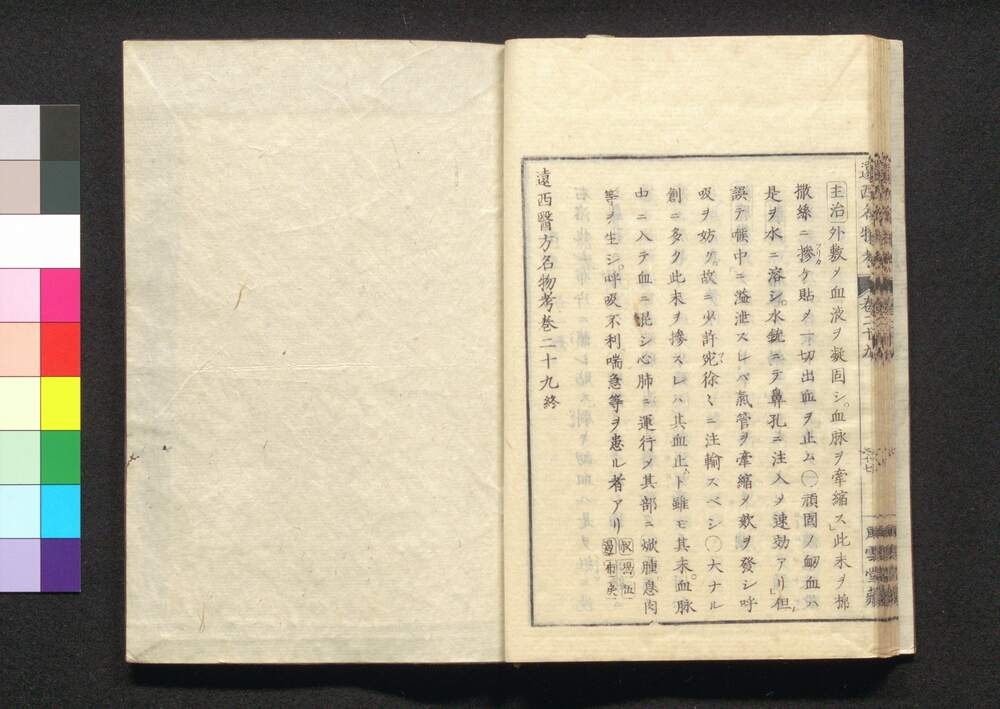 遠西名物考 卷二十九
主治 外敷メ血液ヲ凝固シ血脉ヲ牽縮ス」此末ヲ棉
撒絲ニ摻ケ貼メ一切出血ヲ止ム○頑固ノ衂血ハ
是ヲ水ニ溶シ水銃ニテ鼻孔ニ注入メ速効アリ」但シ
誤テ喉中ニ溢泄スレバ氣管ヲ牽縮メ欬ヲ發シ呼
吸ヲ妨ク故ニ少許宛徐々ニ注輸スベシ○大ナル
創ニ多ク此末ヲ摻スレハ其血止ムト雖モ其末血脉
中ニ入テ血ニ混シ心肺ニ運行メ其部ニ焮腫瘜肉
等ヲ生シ呼吸不利喘急等ヲ患ル者アリ
遠西醫方名物考卷二十九終